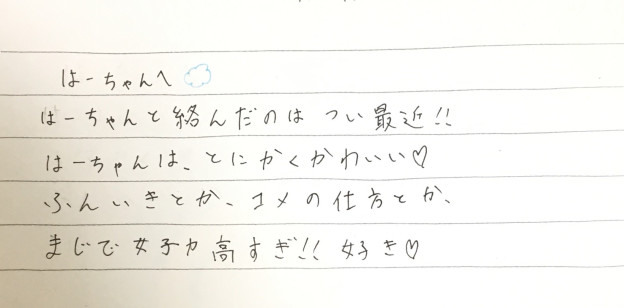 はーちゃんへ
はーちゃんと絡んだのは つい最近!!
はーちゃんは、とにかくかわいい♡
ふんいきとか、コメの仕方とか、
まじで女子力高すぎ!! 好き♡